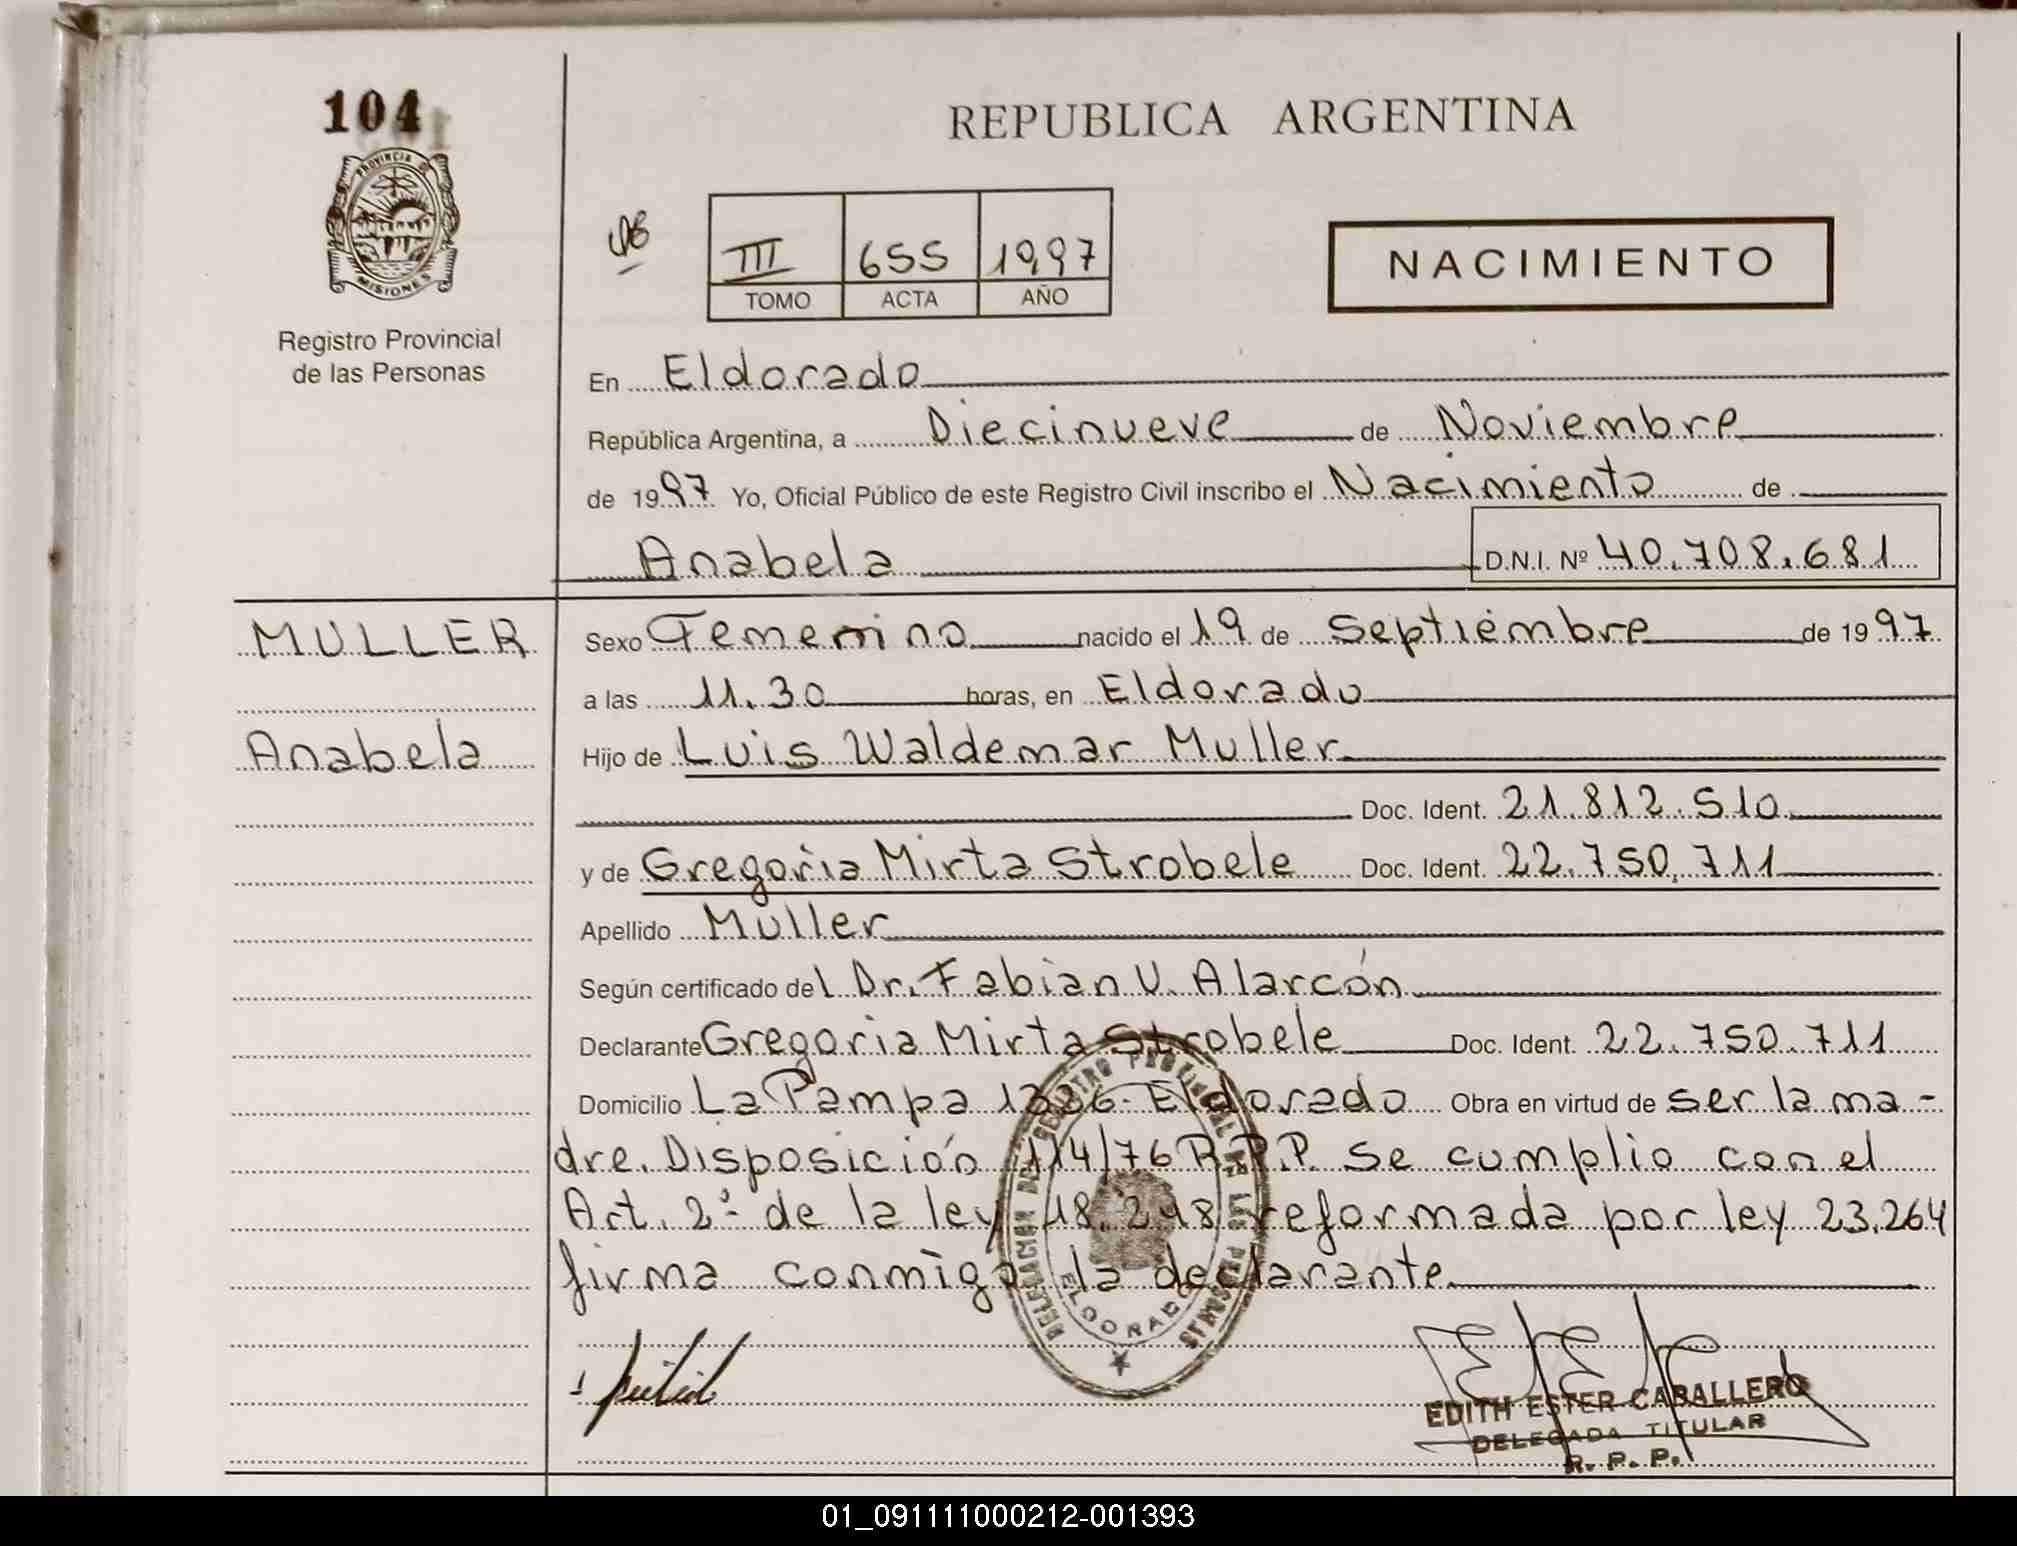 104
REPUBLICA ARGENTINA
PROVINCIA DE
MISIONES
III 655 1997
TOMO ACTA AÑO
NACIMIENTO
Registro Provincial
de las Personas
En Eldorado
República Argentina, a Diecinueve de Noviembre
de 1997 Yo, Oficial Público de este Registro Civil inscribo el Nacimiento de
Anabela D.N.I. Nº 40.708.681
MULLER
Anabela
Sexo Femenino nacido el 19 de Septiembre de 1997
a las 11.30 horas, en Eldorado
Hijo de Luis Waldemar Muller
Doc. Ident. 21.812.510
y de Gregoria Mirta Strobele Doc. Ident. 22.750.711
Apellido Muller
Según certificado del Dr. Fabian V. Alarcón
Declarante Gregoria Mirta Strobele Doc. Ident. 22.750.711
Domicilio La Pampa Eldorado Obra en virtud de ser la ma-
dre. Disposición 114/76 R.P.P. se cumplio con el
Art. 2º de la ley 18.248 reformada por ley 23.264
firma conmigo la declarante.
DELEGACION DEL REGISTRO PROVINCIAL DE LAS PERSONAS
ELDORADO
EDITH ESTER CABALLERO
DELEGADA TITULAR
R. P. P.
01_091111000212-001393